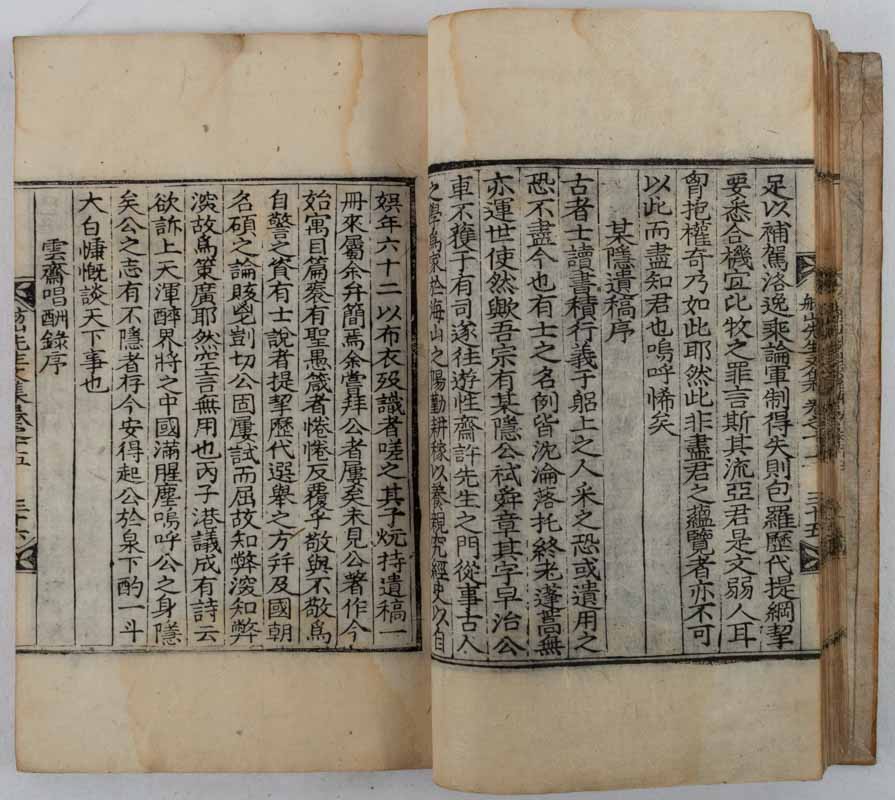 足以補駕洛逸乘論軍制得失則包羅歷代提綱挈
要悉合機宜比牧之罪言斯其流亞君是文弱人耳
胷抱權奇乃如此耶然此非盡君之蘊覽者亦不可
以此而盡知君也嗚呼悕矣
某隱遺稿序
古者士讀書積行義于躳上之人采之恐或遺用之
恐不盡今也有士之名例皆沈淪落托終老蓬蒿無
亦運世使然歟吾宗有某隱公栻舜章其字早治公
車不獲于有司遂往遊性齋許先生之門從事古人
之學爲家於海山之陽勤耕稼以養親究經史以自
娛年六十二以布衣歿識者嗟之其子炕持遺稿一
冊來屬余弁簡焉余嘗拜公者屢矣未見公著作今
始寓目篇袠有聖愚箴者惓惓反覆乎敬與不敬爲
自警之資有士說者提挈歷代選擧之方幷及國朝
名碩之論賅鬯剴切公固屢試而屈故知弊深知弊
深故爲策廣耶然空言無用也丙子港議成有詩云
欲訴上天渾醉界將之中國滿腥塵嗚呼公之身隱
矣公之志有不隱者存今安得起公於泉下酌一斗
大白慷慨談天下事也
雲齋唱酬錄序
先生文集卷之十五 三十六